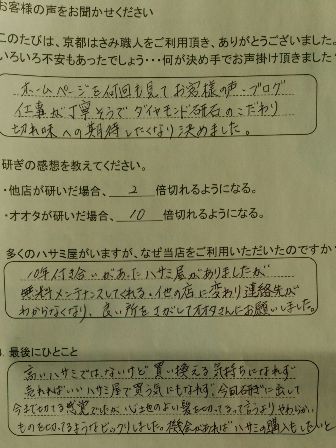 お客様の声をお聞かせください
このたびは、京都はさみ職人をご利用頂き、ありがとうございました。
いろいろ不安もあったでしょう・・・何が決め手でお声掛け頂きました
ホームページを何回も見てお客様の声・ブログ
仕事が丁寧そうでダイヤモンド砥石のこだわり
切れ味への期待したくなり決めました。
研ぎの感想を教えてください。
・他店が研いだ場合、2 倍切れるようになる。
・オオタが研いだ場合、10 倍切れるようになる。
多くのハサミ屋がいますが、なぜ当店をご利用いただいたのですか
10年付き合いがあったハサミ屋がありましたが
無料メンテナンスしてくれる、他の店に変わり連絡先が
わからなくなり、良い所をさがしてオオタさんにお願いしました。
最後にひとこと
高いハサミではないけど買い換える気持ちになれず
売れればいいハサミ屋で買う気にもなれず今回研ぎに出して
今まで切てる感覚でしたが、心地のよい髪を切てるって言うよりやわらかい
ものを切てるようなビックリしました。機会があればハサミの購入もしたいと